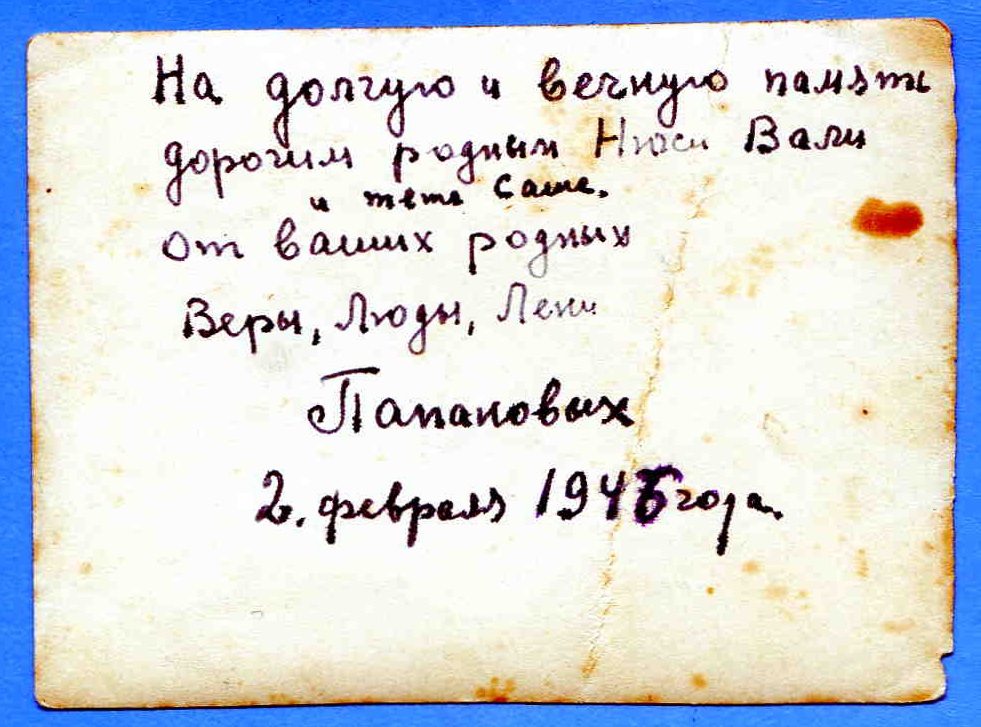 На долгую и вечную память
дорогим родным Нюси Вали
и тете Саше.
От ваших родных
Веры, Люды, Лени
Папановых
2. февраля 194 года.